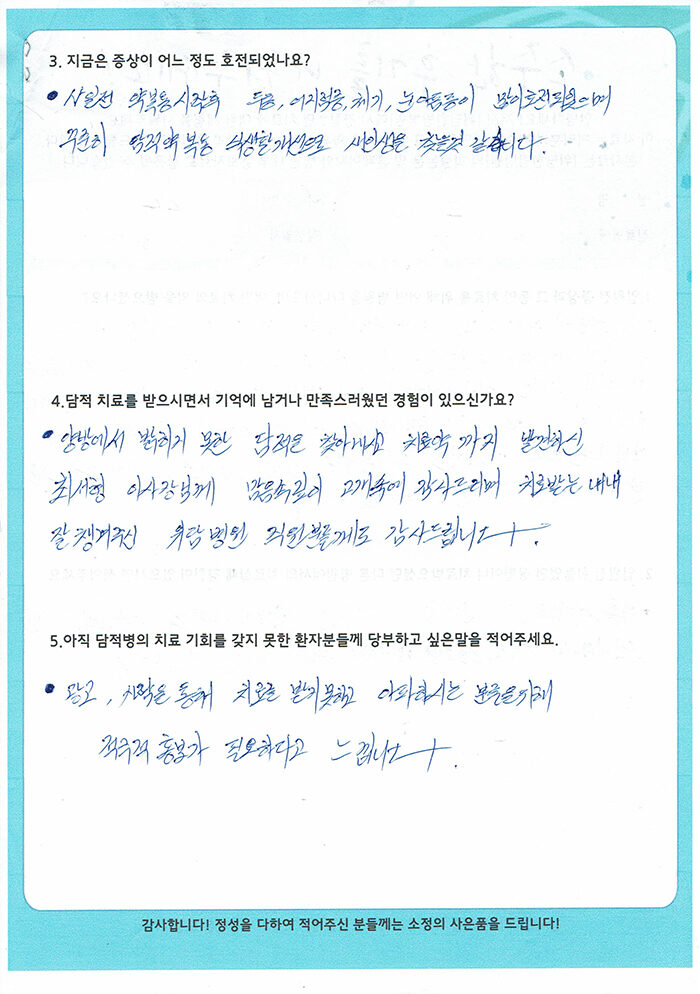 3. 지금은 증상이 어느 정도 호전되었나요?
• 사일전 약복용시작후 두통, 어지럼증, 체기, 눈어둠등이 많이호전되었으며
꾸준히 담적약 복용 식생활개선으로 새인생을 찾을것 같습니다.
4.담적 치료를 받으시면서 기억에 남거나 만족스러웠던 경험이 있으신가요?
• 양방에서 밝히지 못한 담적을 찾아내시고 치료약 까지 발견하신
최서형 이사장님께 마음속깊이 고개숙여 감사드리며 치료받는 내내
잘 챙겨주신 위담병원 직원분들게도 감사드립니다.
5.아직 담적병의 치료 기회를 갖지 못한 환자분들께 당부하고 싶은말을 적어주세요.
• 광고, 서적을 통해 치료를 받지못하고 아파하시는 분들을위해
적극적 홍보가 필요하다고 느낍니다.
감사합니다! 정성을 다하여 적어주신 분들께는 소정의 사은품을 드립니다!